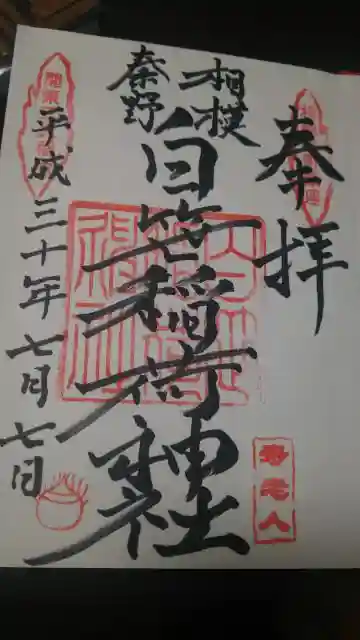 奉拝
相模
秦野
白笹稲荷神社
平成三十年七月七日
寿老人